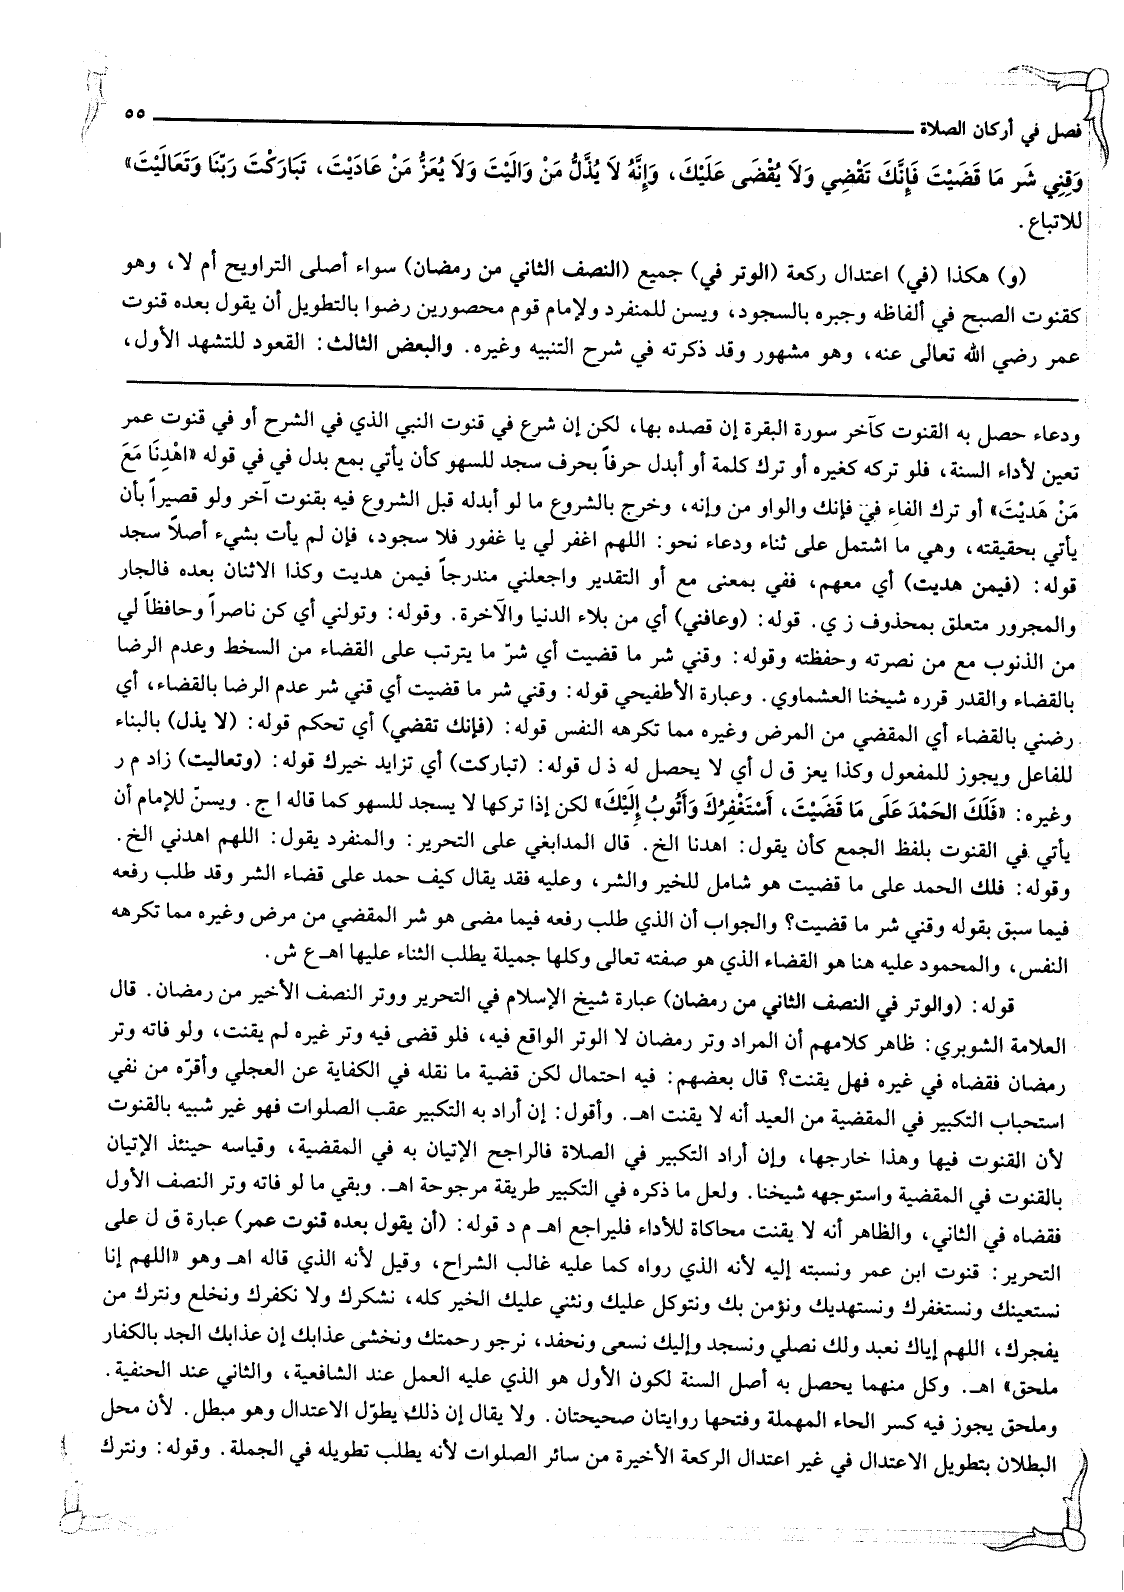 فصل في أركان الصلاة ٥٥
وَقِنِي شَر مَا قَضَيْتَ فَإِنَّكَ تَقْضِي وَلاَ يُقْضَى عَلَيْكَ، وَإِنَّهُ لاَ يُذَلُّ مَنْ وَالَيْتَ وَلاَ يُعَزُّ مَنْ عَادَيْتَ، تَبَارَكْتَ رَبَّنَا وَتَعَالَيْتَ»
للاتباع.
(و) هكذا (في) اعتدال ركعة (الوتر في) جميع (النصف الثاني من رمضان) سواء أصلى التراويح أم لا، وهو
كقنوت الصبح في ألفاظه وجبره بالسجود، ويسن للمنفرد ولإمام قوم محصورين رضوا بالتطويل أن يقول بعده قنوت
عمر رضي الله تعالى عنه، وهو مشهور وقد ذكرته في شرح التنبيه وغيره. والبعض الثالث: القعود للتشهد الأول،
ودعاء حصل به القنوت كآخر سورة البقرة إن قصده بها، لكن إن شرع في قنوت النبي الذي في الشرح أو في قنوت عمر
تعين لأداء السنة، فلو تركه كغيره أو ترك كلمة أو أبدل حرفاً بحرف سجد للسهو كأن يأتي بمع بدل في في قوله «اهْدِنَا مَعَ
مَنْ هَدَيْتَ» أو ترك الفاء في فإنك والواو من وإنه، وخرج بالشروع ما لو أبدله قبل الشروع فيه بقنوت آخر ولو قصيراً بأن
يأتي بحقيقته، وهي ما اشتمل على ثناء ودعاء نحو: اللهم اغفر لي يا غفور فلا سجود، فإن لم يأت بشيء أصلاً سجد
قوله: (فيمن هديت) أي معهم، ففي بمعنى مع أو التقدير واجعلني مندرجاً فيمن هديت وكذا الاثنان بعده فالجار
والمجرور متعلق بمحذوف ز ي. قوله: (وعافني) أي من بلاء الدنيا والآخرة. وقوله: وتولني أي كن ناصراً وحافظاً لي
من الذنوب مع من نصرته وحفظته وقوله: وقني شر ما قضيت أي شرّ ما يترتب على القضاء من السخط وعدم الرضا
بالقضاء والقدر قرره شيخنا العشماوي. وعبارة الأطفيحي قوله: وقني شر ما قضيت أي قني شر عدم الرضا بالقضاء، أي
رضني بالقضاء أي المقضي من المرض وغيره مما تكرهه النفس قوله: (فإنك تقضي) أي تحكم قوله: (لا يذل) بالبناء
للفاعل ويجوز للمفعول وكذا يعز ق ل أي لا يحصل له ذ ل قوله: (تباركت) أي تزايد خيرك قوله: (وتعاليت) زاد م ر
وغيره: «فَلَكَ الحَمْدَ عَلَى مَا قَضَيْتَ، أَسْتَغْفِرُكَ وَأَتُوبُ إِلَيْكَ» لكن إذا تركها لا يسجد للسهو كما قاله ا ج. ويسنّ للإمام أن
يأتي في القنوت بلفظ الجمع كأن يقول: اهدنا الخ. قال المدابغي على التحرير: والمنفرد يقول: اللهم اهدني الخ.
وقوله: فلك الحمد على ما قضيت هو شامل للخير والشر، وعليه فقد يقال كيف حمد على قضاء الشر وقد طلب رفعه
فيما سبق بقوله وقني شر ما قضيت؟ والجواب أن الذي طلب رفعه فيما مضى هو شر المقضي من مرض وغيره مما تكرهه
النفس، والمحمود عليه هنا هو القضاء الذي هو صفته تعالى وكلها جميلة يطلب الثناء عليها اهـ ع ش.
قوله: (والوتر في النصف الثاني من رمضان) عبارة شيخ الإسلام في التحرير ووتر النصف الأخير من رمضان. قال
العلامة الشوبري: ظاهر كلامهم أن المراد وتر رمضان لا الوتر الواقع فيه، فلو قضى فيه وتر غيره لم يقنت، ولو فاته وتر
رمضان فقضاه في غيره فهل يقنت؟ قال بعضهم: فيه احتمال لكن قضية ما نقله في الكفاية عن العجلي وأقرّه من نفي
استحباب التكبير في المقضية من العيد أنه لا يقنت اهـ. وأقول: إن أراد به التكبير عقب الصلوات فهو غير شبيه بالقنوت
لأن القنوت فيها وهذا خارجها، وإن أراد التكبير في الصلاة فالراجح الإتيان به في المقضية، وقياسه حينئذ الإتيان
بالقنوت في المقضية واستوجهه شيخنا. ولعل ما ذكره في التكبير طريقة مرجوحة اهـ. وبقي ما لو فاته وتر النصف الأول
فقضاه في الثاني، والظاهر أنه لا يقنت محاكاة للأداء فليراجع اهـ م د قوله: (أن يقول بعده قنوت عمر) عبارة ق ل على
التحرير: قنوت ابن عمر ونسبته إليه لأنه الذي رواه كما عليه غالب الشراح، وقيل لأنه الذي قاله اهـ وهو «اللهم إنا
نستعينك ونستغفرك ونستهديك ونؤمن بك ونتوكل عليك ونثني عليك الخير كله، نشكرك ولا نكفرك ونخلع ونترك من
يفجرك، اللهم إياك نعبد ولك نصلي ونسجد وإليك نسعى ونحفد، نرجو رحمتك ونخشى عذابك إن عذابك الجد بالكفار
ملحق» اهـ. وكل منهما يحصل به أصل السنة لكون الأول هو الذي عليه العمل عند الشافعية، والثاني عند الحنفية.
وملحق يجوز فيه كسر الحاء المهملة وفتحها روايتان صحيحتان. ولا يقال إن ذلك يطوّل الاعتدال وهو مبطل. لأن محل
البطلان بتطويل الاعتدال في غير اعتدال الركعة الأخيرة من سائر الصلوات لأنه يطلب تطويله في الجملة. وقوله: ونترك